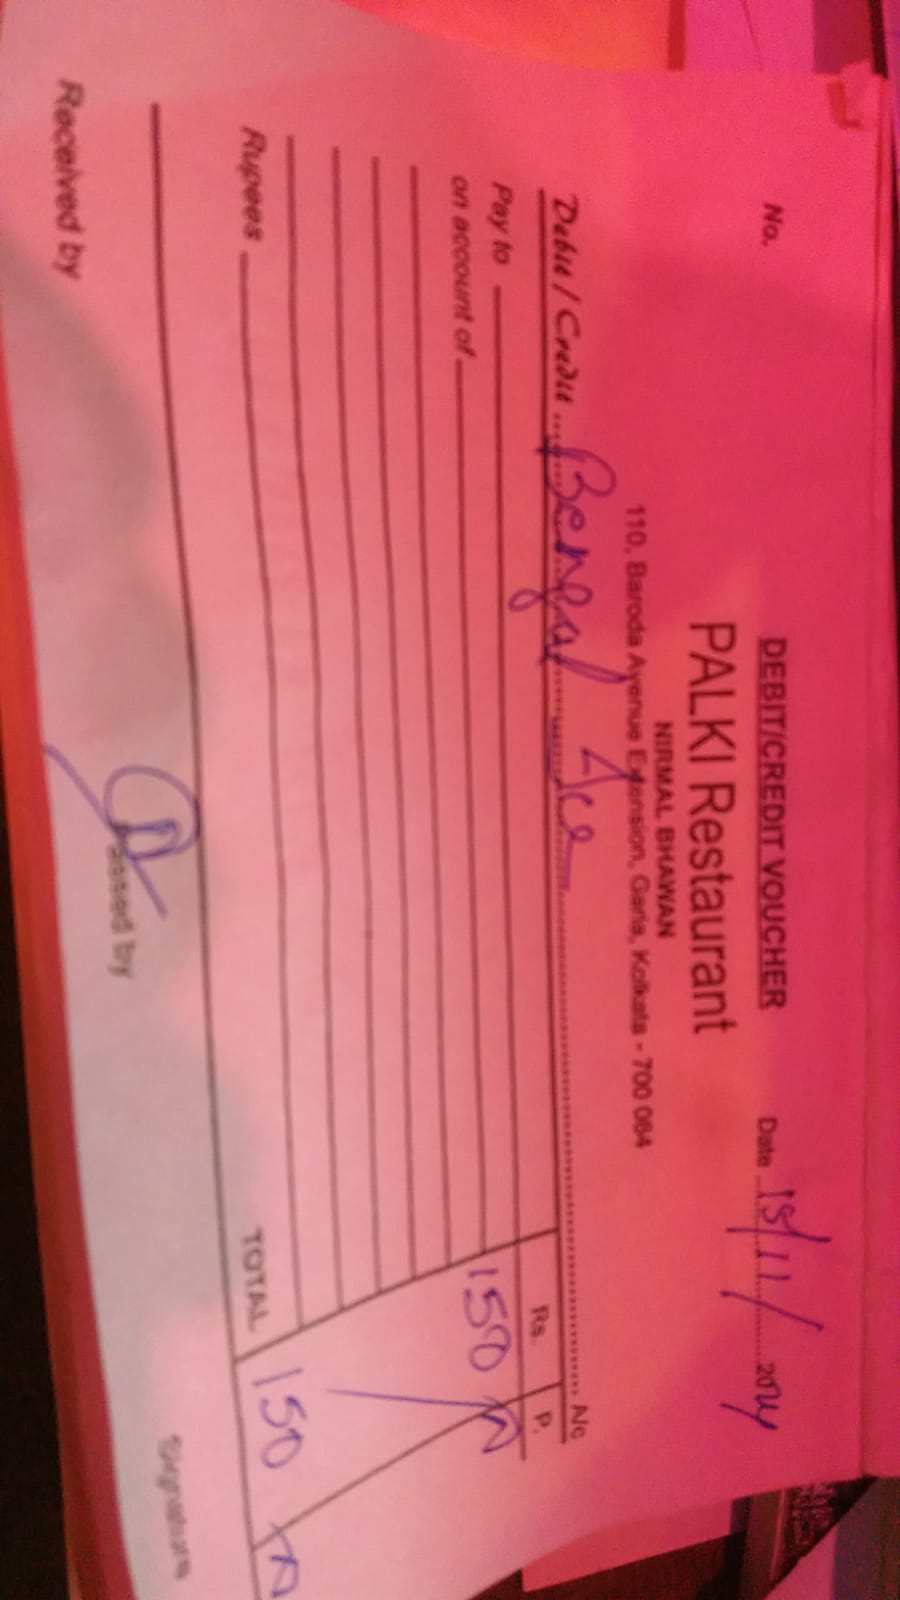 DEBIT/CREDIT VOUCHER
No. Date 15/11/2024
PALKI Restaurant
NIRMAL BHAWAN
110, Baroda Avenue Extension, Garia, Kolkata - 700 084
Debit / Credit Bengal Ice A/c
Rs. P.
Pay to
on account of 150
Rupees TOTAL 150
Received by Passed by Signature